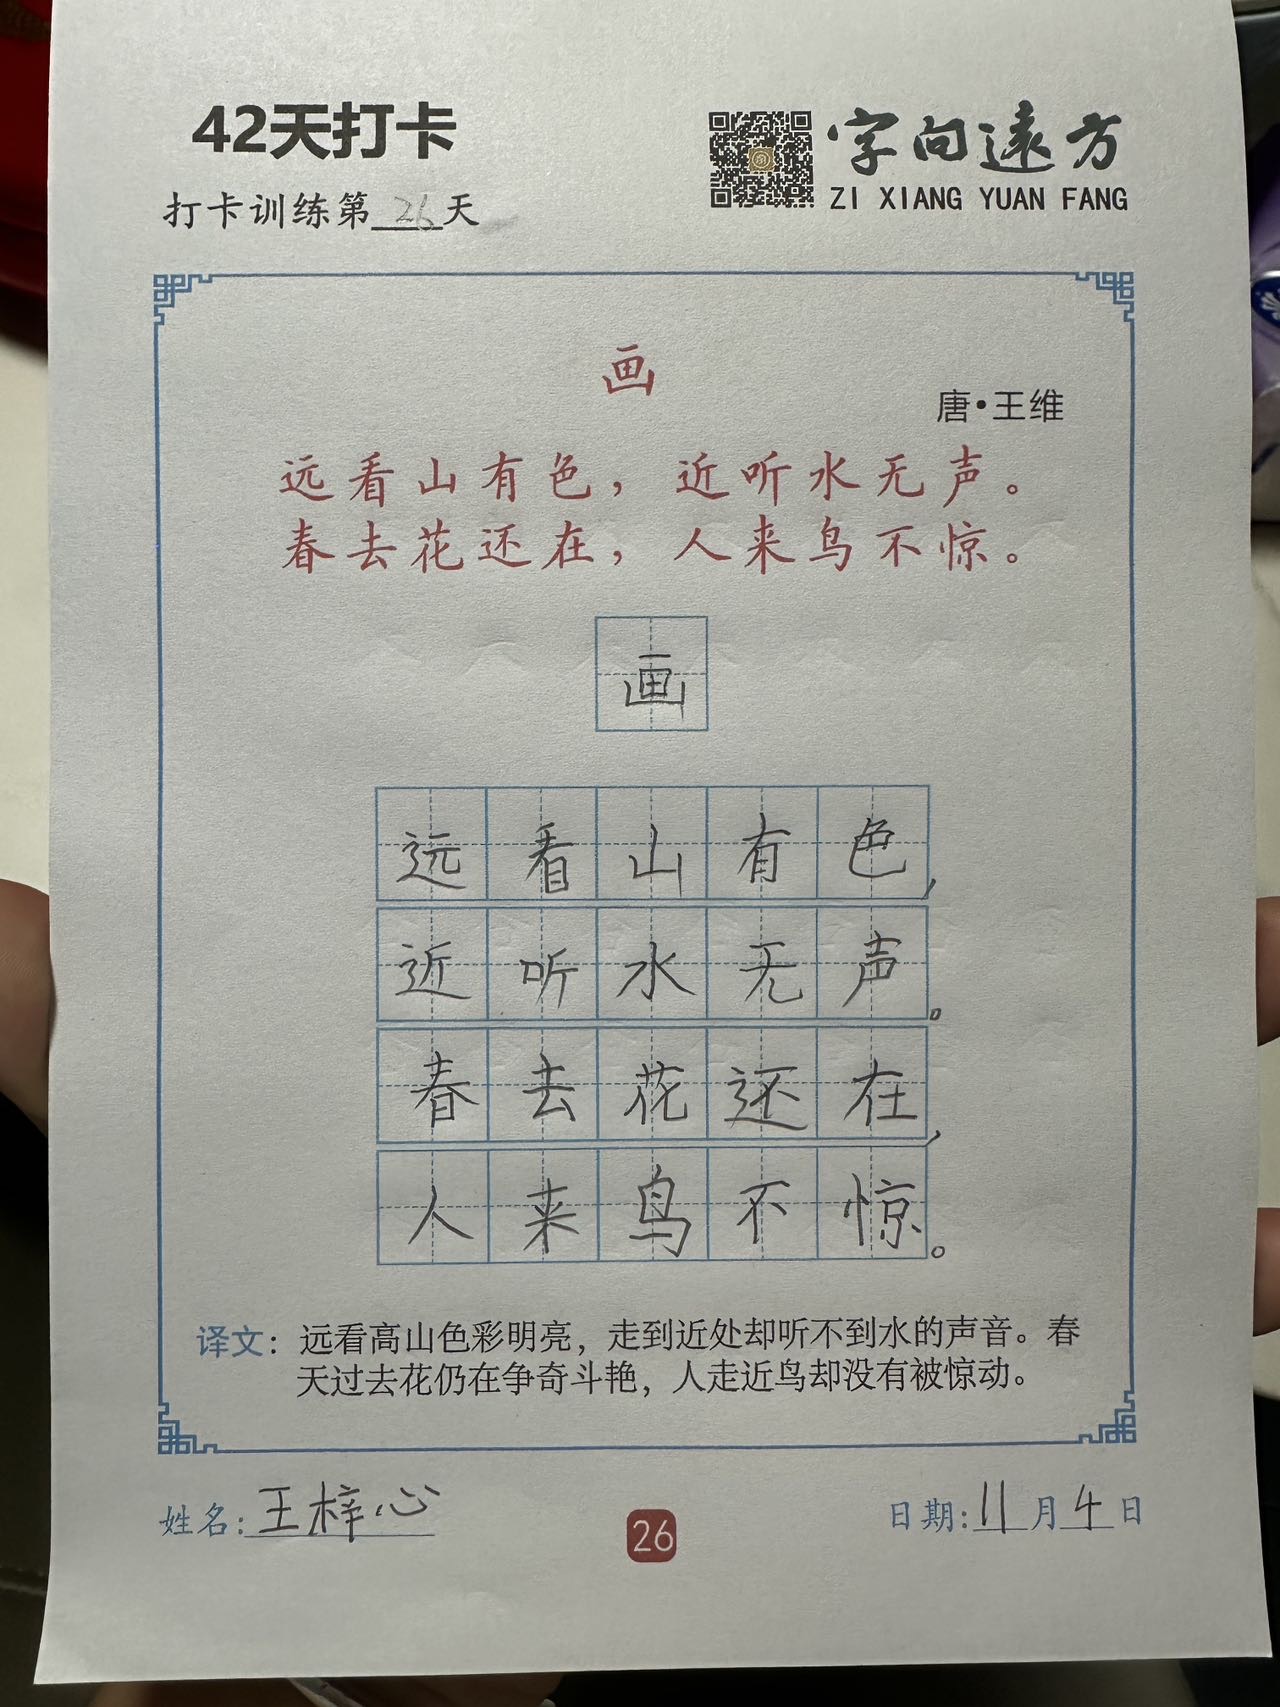 42天打卡
字向遠方
ZI XIANG YUAN FANG
打卡训练第26天
画
唐·王维
远看山有色，近听水无声。
春去花还在，人来鸟不惊。
画
远看山有色，
近听水无声。
春去花还在，
人来鸟不惊。
译文：远看高山色彩明亮，走到近处却听不到水的声音。春
天过去花仍在争奇斗艳，人走近鸟却没有被惊动。
姓名：王梓心
26
日期：11月4日